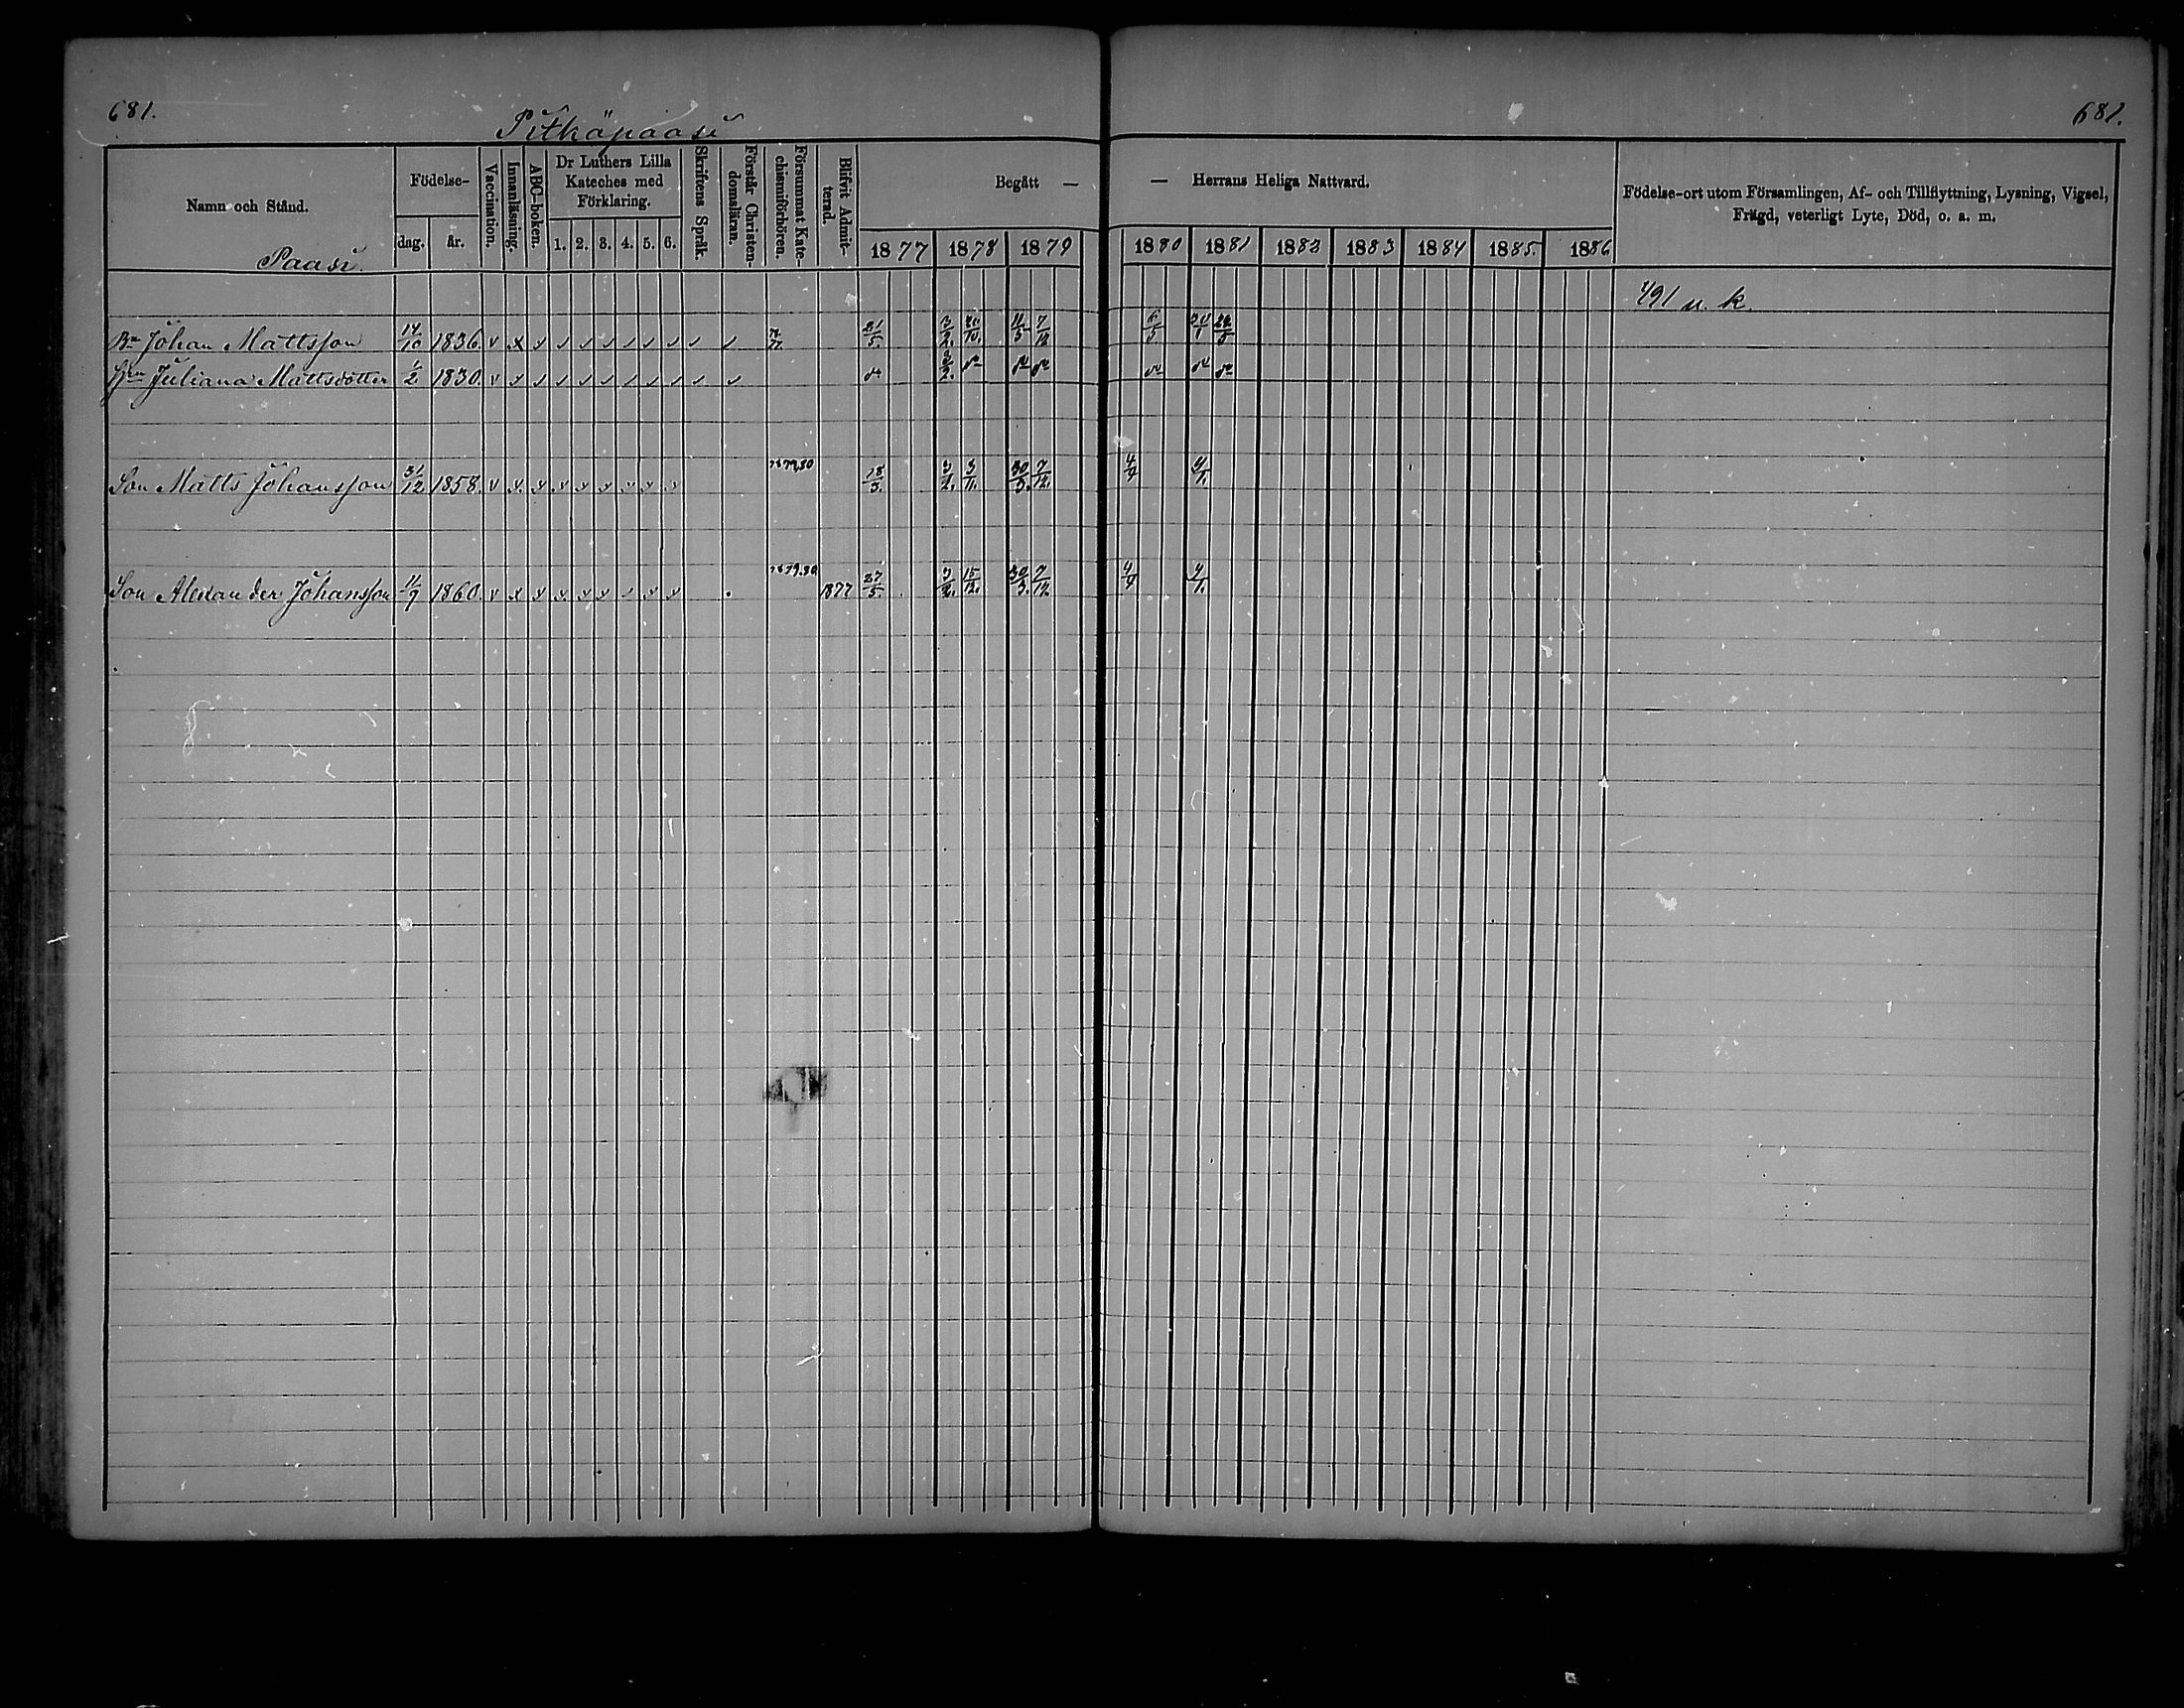 681.
681.
Pitkäpaasi
Namn och Stånd.
Födelse-
dag.
år.
Vaccination.
Innanläsning.
ABC-boken.
Dr Luthers Lilla
Kateches med
Förklaring.
1. 2. 3. 4. 5. 6.
Skriftens Språk.
Förstår Christen-
domsläran.
Försummat Kate-
chismiförhören.
Blifvit Admit-
terad.
Begått —
— Herrans Heliga Nattvard.
1877 1878 1879 1880 1881 1882 1883 1884 1885. 1886
Födelse-ort utom Församlingen, Af- och Tillflyttning, Lysning, Vigsel,
Frägd, veterligt Lyte, Död, o. a. m.
Paasi.
491 u. k.
Bn Johan Mattsson 14/10 1836. 21/5. 3/2. 20/10. 11/5 7/12 6/5
Hru Juliana Mattsdotter 1/2 1830. do 3/2. do do do do do do
Son Matts Johansson 31/12 1858. 1879,80 18/3. 3/2. 3/11. 30/3. 7/12. 4/4 4/1.
Son Alexander Johansson 11/9 1860. 1879.80 1877 27/5. 3/2. 15/12. 30/3. 7/12. 4/4 4/1.